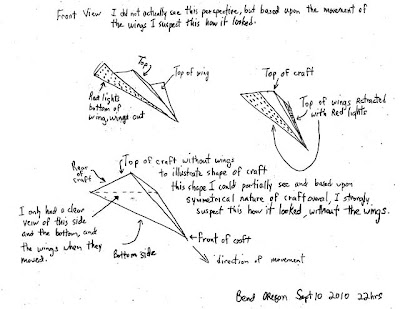 Front View I did not actually see this perspective, but based upon the movement of
the wings I suspect this how it looked.
Top
Top of wing
Red lights
bottom of
wing, wings out
Top of craft
Top of wings Retracted
with Red lights
Rear of
craft
Top of craft without wings
to illustrate shape of craft
this shape I could partially see and based upon
symmetrical nature of craft overal, I strongly
suspect this how it looked, without the wings.
I only had a clear
view of this side
and the bottom, and
the wings when they
moved.
Bottom side
Front of craft
direction of movement
Bend Oregon Sept 10 2010 22hrs